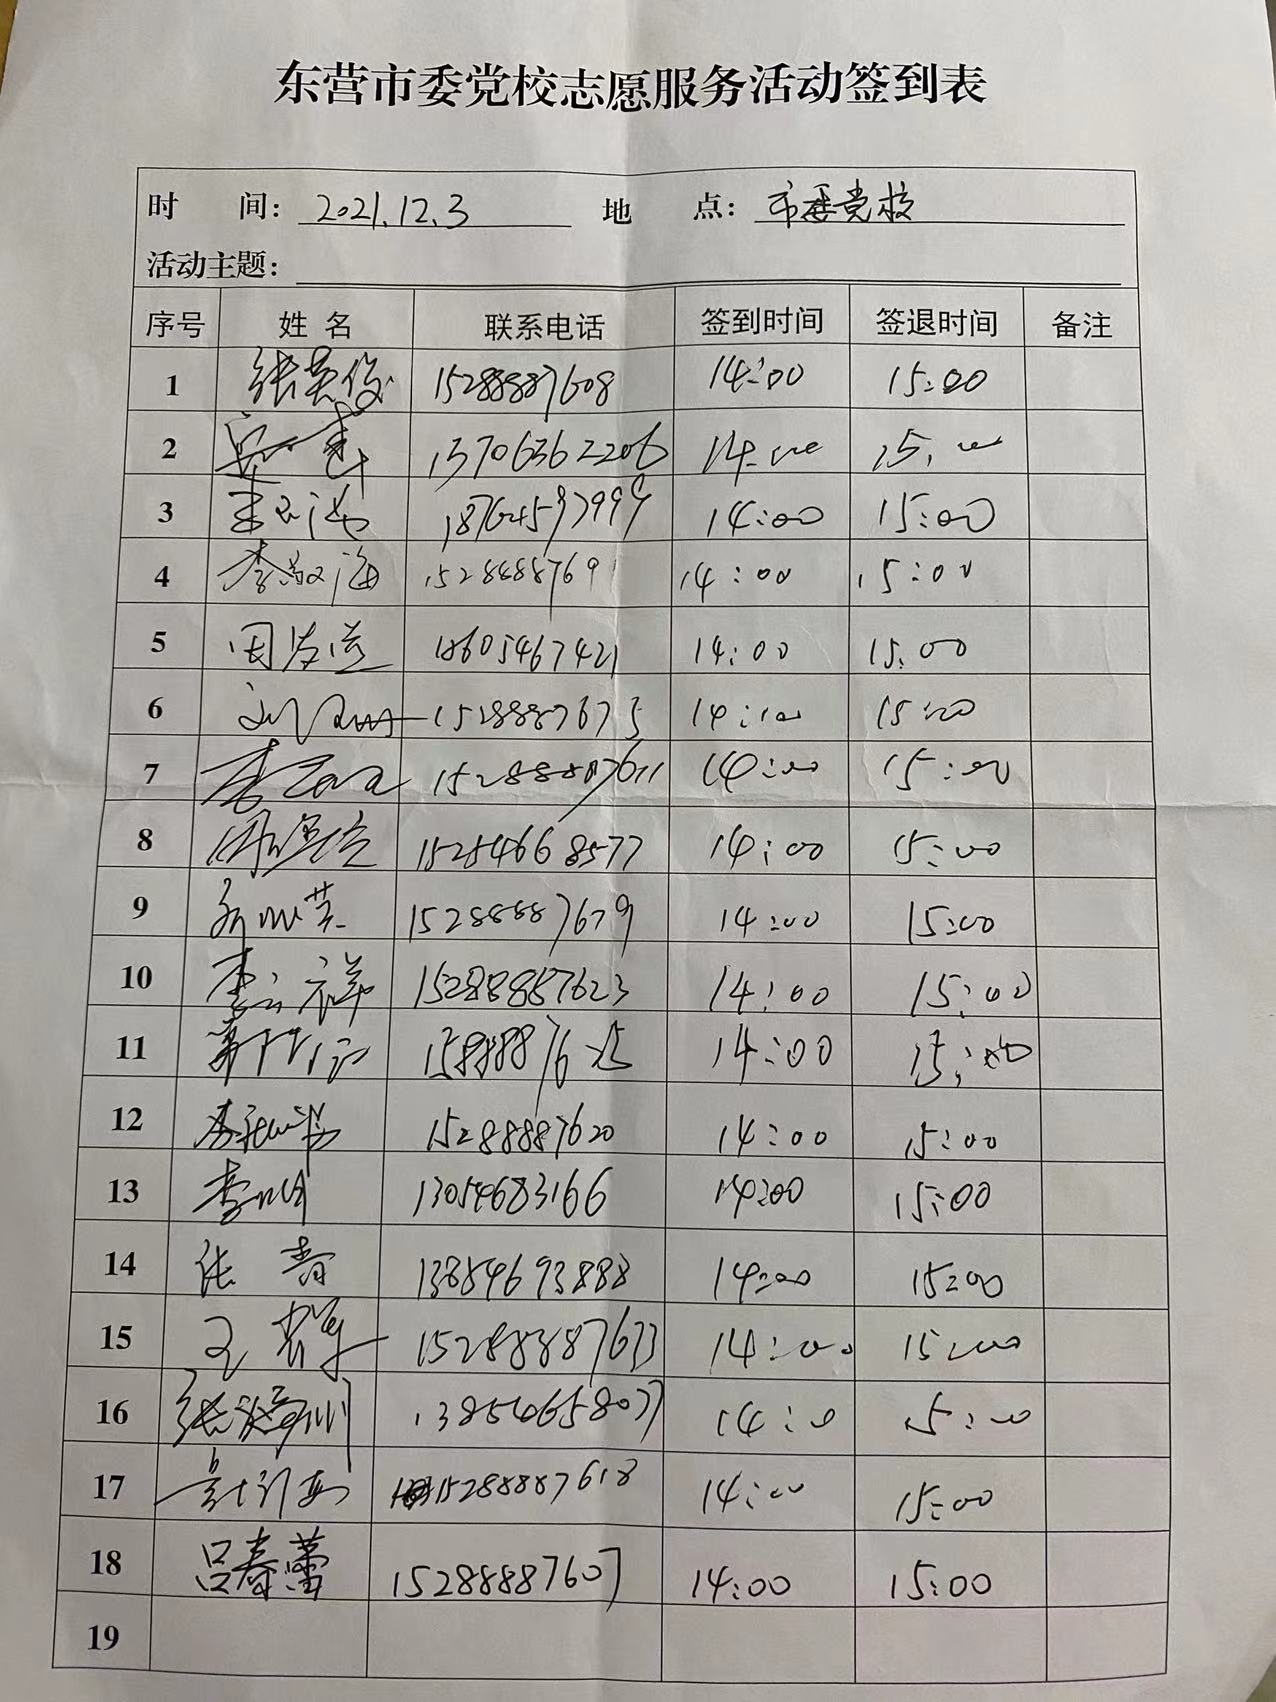 东营市委党校志愿服务活动签到表
时 间: 2021.12.3 地 点: 市委党校
活动主题:
序号 姓名 联系电话 签到时间 签退时间 备注
1 张英俊 15288887608 14:00 15:00
2 13706362206 14:00 15:00
3 18764597999 14:00 15:00
4 李敬海 14:00 15:00
5 18605467421 14:00 15:00
6 15288887675 14:00 15:00
7 15288887611 14:00 15:00
8 15254668577 14:00 15:00
9 15288887679 14:00 15:00
10 15288887623 14:00 15:00
11 14:00 15:00
12 15288887620 14:00 15:00
13 13054683166 14:00 15:00
14 张青 13854693888 14:00 15:00
15 15288887633 14:00 15:00
16 13854658077 14:00 15:00
17 15288887618 14:00 15:00
18 吕春蕾 15288887607 14:00 15:00
19